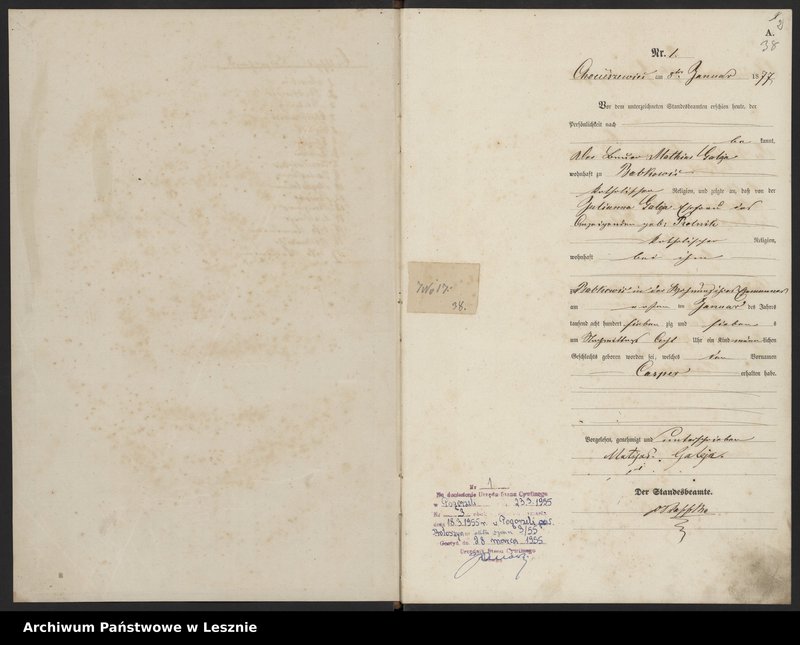 A.
38
Nr. 1.
am 8ten Januar 1877
Vor dem unterzeichneten Standesbeamten erschien heute, der
Persönlichkeit nach
be kannt,
Mathias Galza
wohnhaft zu Babkowic
katholischer Religion, und zeigte an, daß von der
Julianna Galza Ehefrau des
Anzeigenden geb.
katholischer Religion,
wohnhaft bei ihm
zu Babkowic in der Wohnung ihres Ehemannes
am ersten ten Januar des Jahres
tausend acht hundert sieben zig und sieben
um Nachmittags acht Uhr ein Kind männlichen
Geschlechts geboren worden sei, welches den Vornamen
Casper erhalten habe.
Vorgelesen, genehmigt und unterschrieben
Galza.
Der Standesbeamte.
38.
Nr 1
Na doniesienie Urzędu Stanu Cywilnego
w Pogorzeli 23.3.1955
Nr 3
dnia 18.3.1955 r. w Pogorzeli pow.
3/55
Gostyń dn. 28 marca 1955
Urzędnik Stanu Cywilnego
Archiwum Państwowe w Lesznie